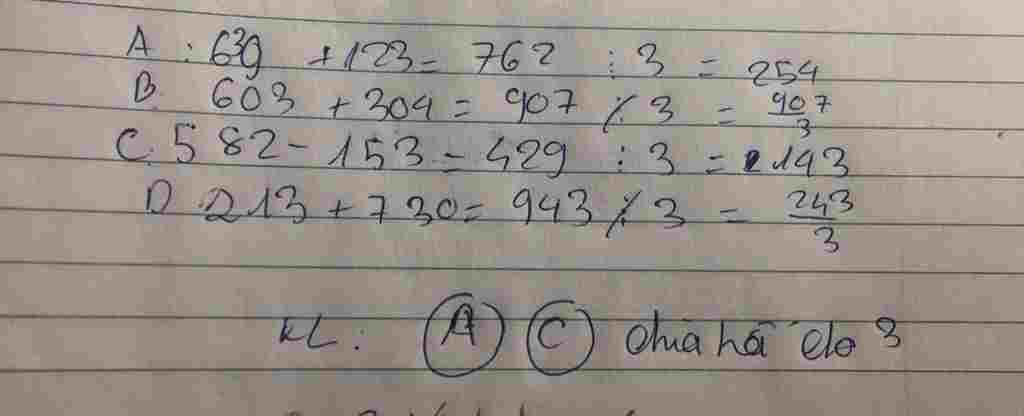 A : 639 + 123 = 762 : 3 = 254
B 603 + 304 = 907 ⋮̸ 3 = 907/3
C. 582 - 153 = 429 : 3 = 143
D 213 + 730 = 943 ⋮̸ 3 = 243/3
KL : A C chia hế cho 3